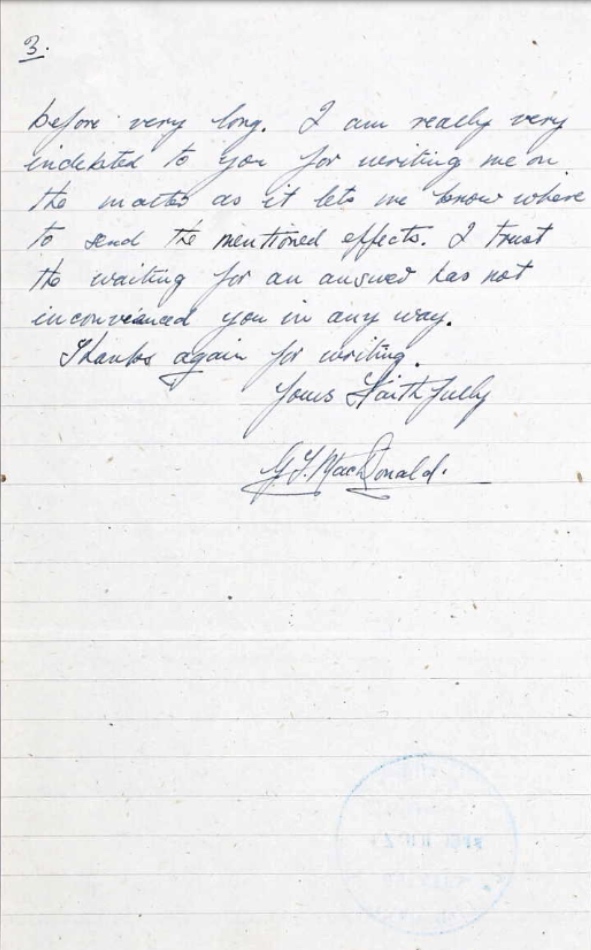 3.
before very long. I am really very
indebted to you for writing me on
the matter as it lets me know where
to send the mentioned effects. I trust
the waiting for an answer has not
inconvienced you in any way.
Thanks again for writing.
Yours Faithfully
MacDonald.